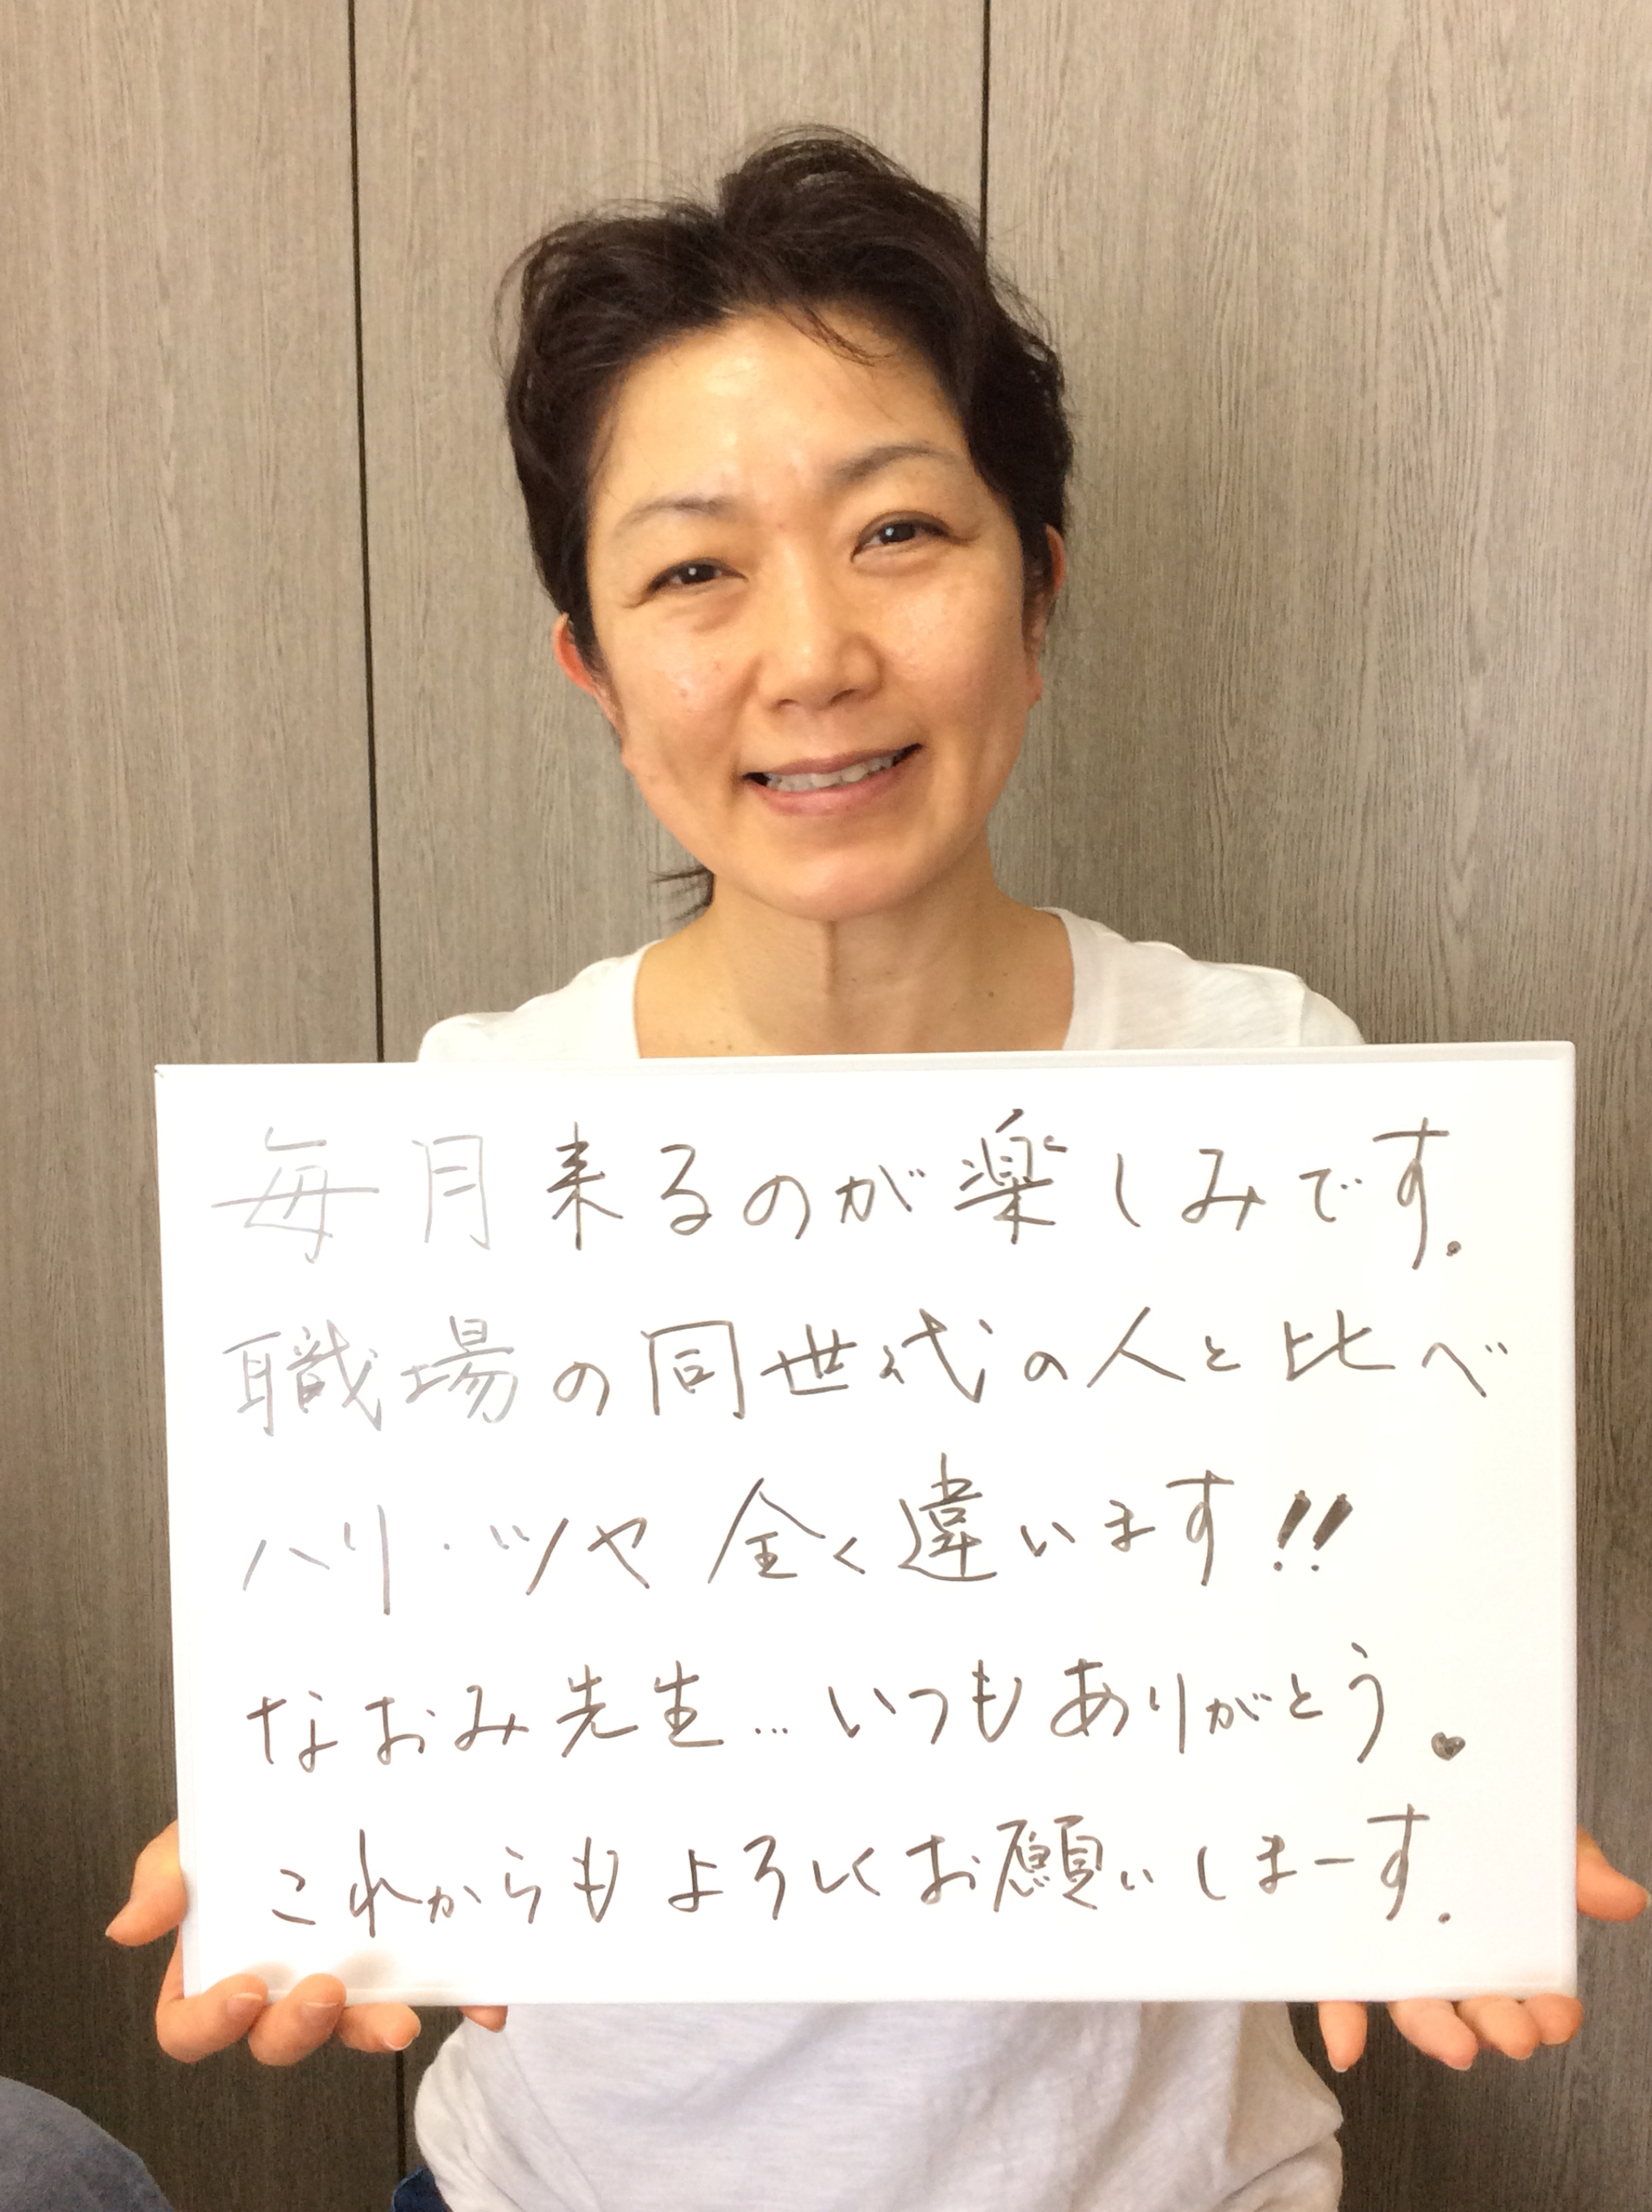 毎月来るのが楽しみです.
職場の同世代の人と比べ
ハリ・ツヤ 全く違います!!
なおみ先生... いつもありがとう♥
これからもよろしくお願いしまーす.